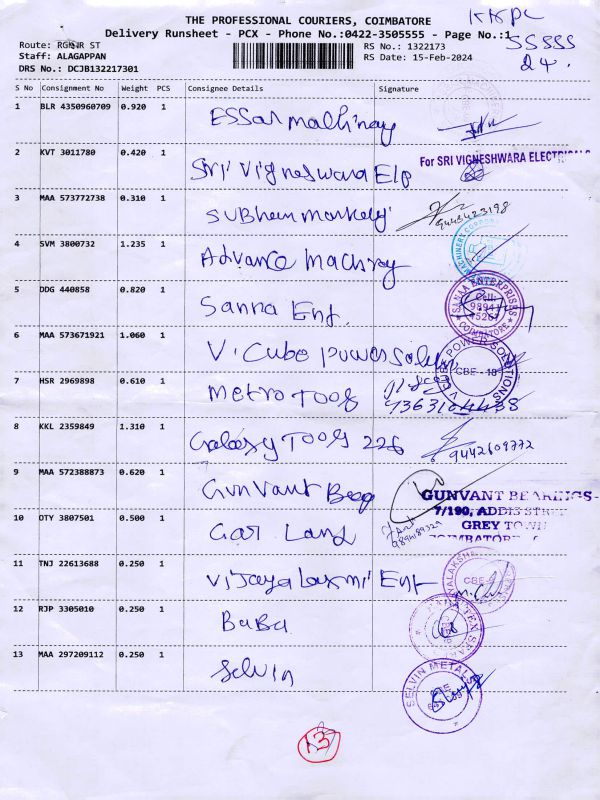 THE PROFESSIONAL COURIERS, COIMBATORE
Delivery Runsheet - PCX - Phone No.:0422-3505555 - Page No.:1
KKPC
SSSSS
24.
Route: RGNJR ST
Staff: ALAGAPPAN
DRS No.: DCJB132217301
RS No.: 1322173
RS Date: 15-Feb-2024
S No Consignment No Weight PCS Consignee Details Signature
1 BLR 4350960709 0.920 1 Essar machinery
2 KVT 3011780 0.420 1 Sri Vigneswara Ele
For SRI VIGNESHWARA ELECTRICALS
3 MAA 573772738 0.310 1 Subham
4 SVM 3800732 1.235 1 Advance
5 DDG 440858 0.820 1 Sanna Ent.
SANAA ENTERPRISES
Cell:
COIMBATORE
6 MAA 573671921 1.060 1 V. Cube power
POWER SOLUTIONS
CBE - 18
7 HSR 2969898 0.610 1 metro Tools
8 KKL 2359849 1.310 1 Galaxy Tools 226
9442609772
9 MAA 572388873 0.620 1 Gunvant
GUNVANT BEARINGS
7/190, ADDIS STREET
GREY TOWN
COIMBATORE
10 DTY 3807501 0.500 1 Gar Land
11 TNJ 22613688 0.250 1 Vijayalaxmi Ent
CBE
12 RJP 3305010 0.250 1 BaBa
13 MAA 297209112 0.250 1 Selvin
SELVIN METALS
13